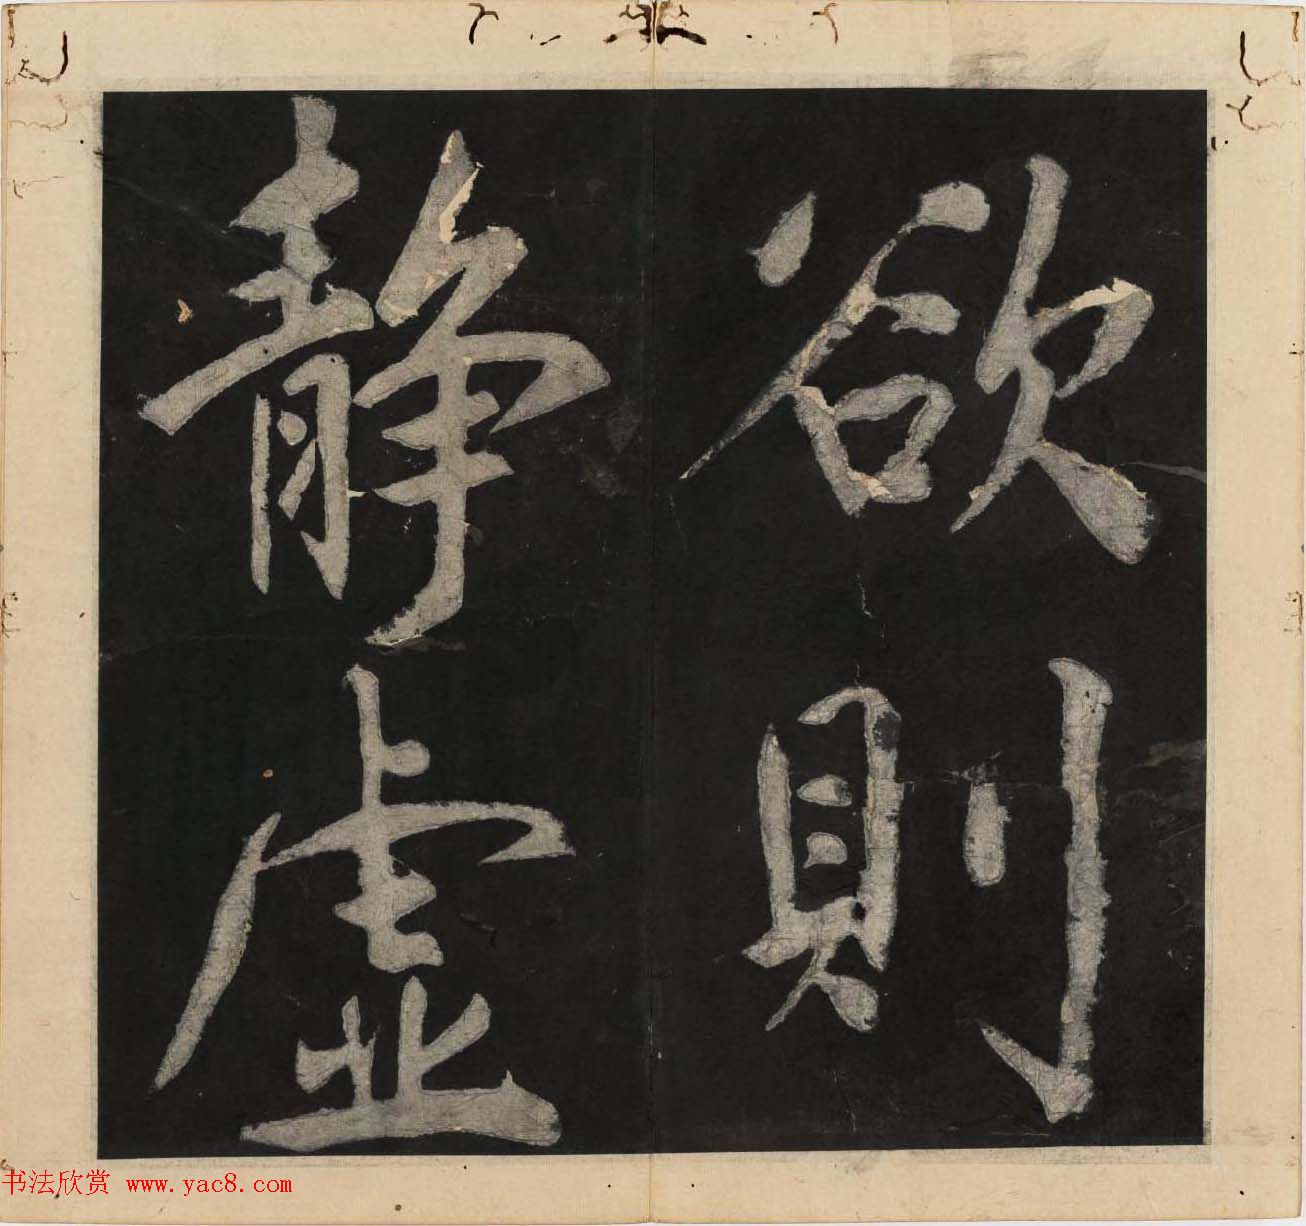 欲則
静虚
书法欣赏 www.yac8.com